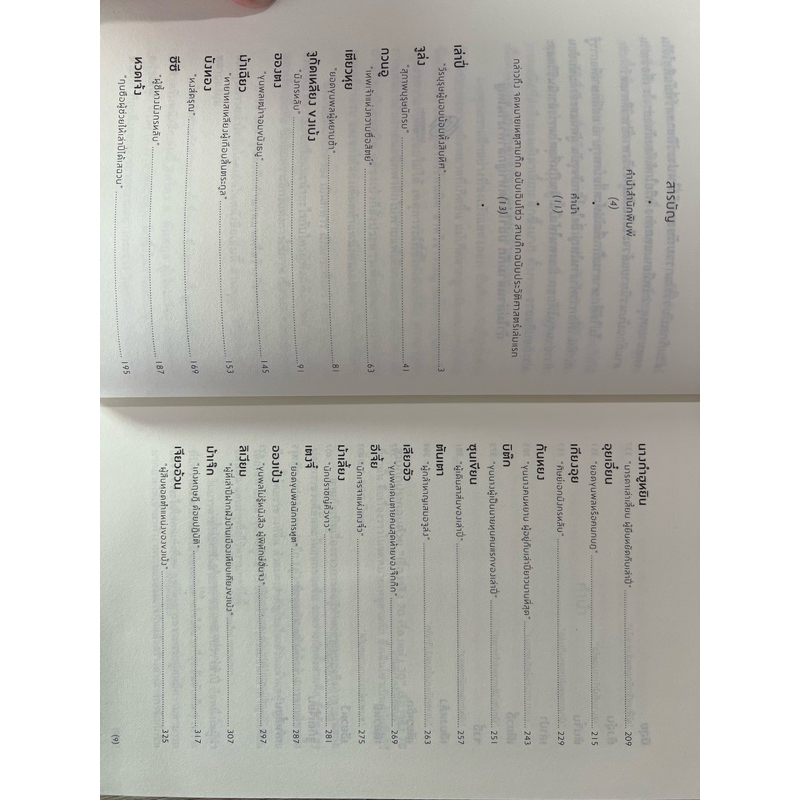 สารบัญ
•
คำนำสำนักพิมพ์
(4)
•
คำนำ
(11)
•
กล่าวถึง จดหมายเหตุสามก๊ก ฉบับเฉินโซ่ว สามก๊กฉบับประวัติศาสตร์เล่มแรก
(13)
•
เล่าปี่
"วีรบุรุษผู้นอบน้อมทั้งสิบทิศ" 3
จูล่ง
"สุภาพบุรุษนักรบ" 41
กวนอู
"เทพเจ้าแห่งความซื่อสัตย์" 63
เตียวหุย
"ยอดขุนพลผู้หยาบช้า" 81
จูกัดเหลียง ขงเบ้ง
"มังกรหลับ" 91
ฮองตง
"ขุนพลเฒ่าจอมขมังธนู" 145
ม้าเฉียว
"ทายาทเสเหลียงผู้เกือบสิ้นตระกูล" 153
บังทอง
"หงส์ดรุณ" 169
ชีซี
"ผู้ชี้ทางมังกรหลับ" 187
หวดเจ้ง
"กุนซือผู้ช่วยให้เล่าปี่ได้เสฉวน" 195
นางกำฮูหยิน
"มารดาเล่าเสี้ยน ผู้ยืนหยัดกับเล่าปี่" 209
อุยเอี๋ยน
"ยอดขุนพลหรือคนกบฏ" 215
เกียงอุย
"ศิษย์เอกมังกรหลับ" 229
กันหยง
"ขุนนางคนสนิท ผู้อยู่กับเล่าปี่ยาวนานที่สุด" 243
บิต๊ก
"ขุนนางผู้เป็นนายทุนคนแรกของเล่าปี่" 251
ซุนเขียน
"ผู้เดินสาส์นของเล่าปี่" 257
ตันเตา
"ผู้กล้าหาญเสมอจูล่ง" 263
เลียวฮัว
"ขุนพลคนสุดท้ายของจ๊กก๊ก" 269
อีเจี้ย
"นักเจรจาแห่งเกงจิ๋ว" 275
ม้าเลี้ยง
"นักปราชญ์คิ้วขาว" 281
เตงจี๋
"ยอดขุนพลนักการทูต" 287
อองเป๋ง
"ขุนพลไม่รู้หนังสือ ผู้พิทักษ์ฮันจง" 297
ลิเงียม
"ผู้ที่เล่าปี่ฝากฝังบ้านเมืองเทียบเคียงขงเบ้ง" 307
ม้าเจ๊ก
"เก่งทฤษฎี ด้อยปฏิบัติ" 317
เจียวอ้วน
"ผู้สืบทอดตำแหน่งของขงเบ้ง" 325
(9)